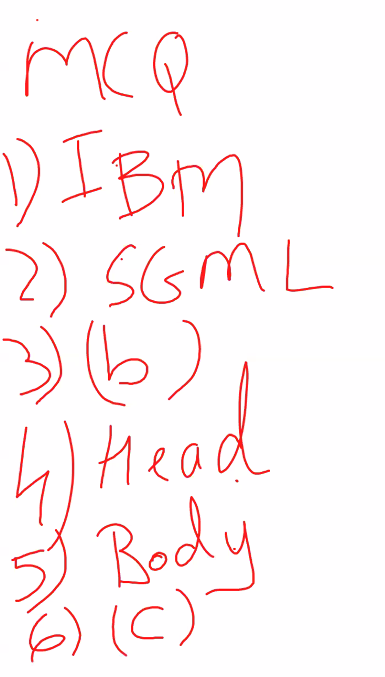 MCQ
1) IBM
2) SGML
3) (b)
4) Head
5) Body
6) (C)